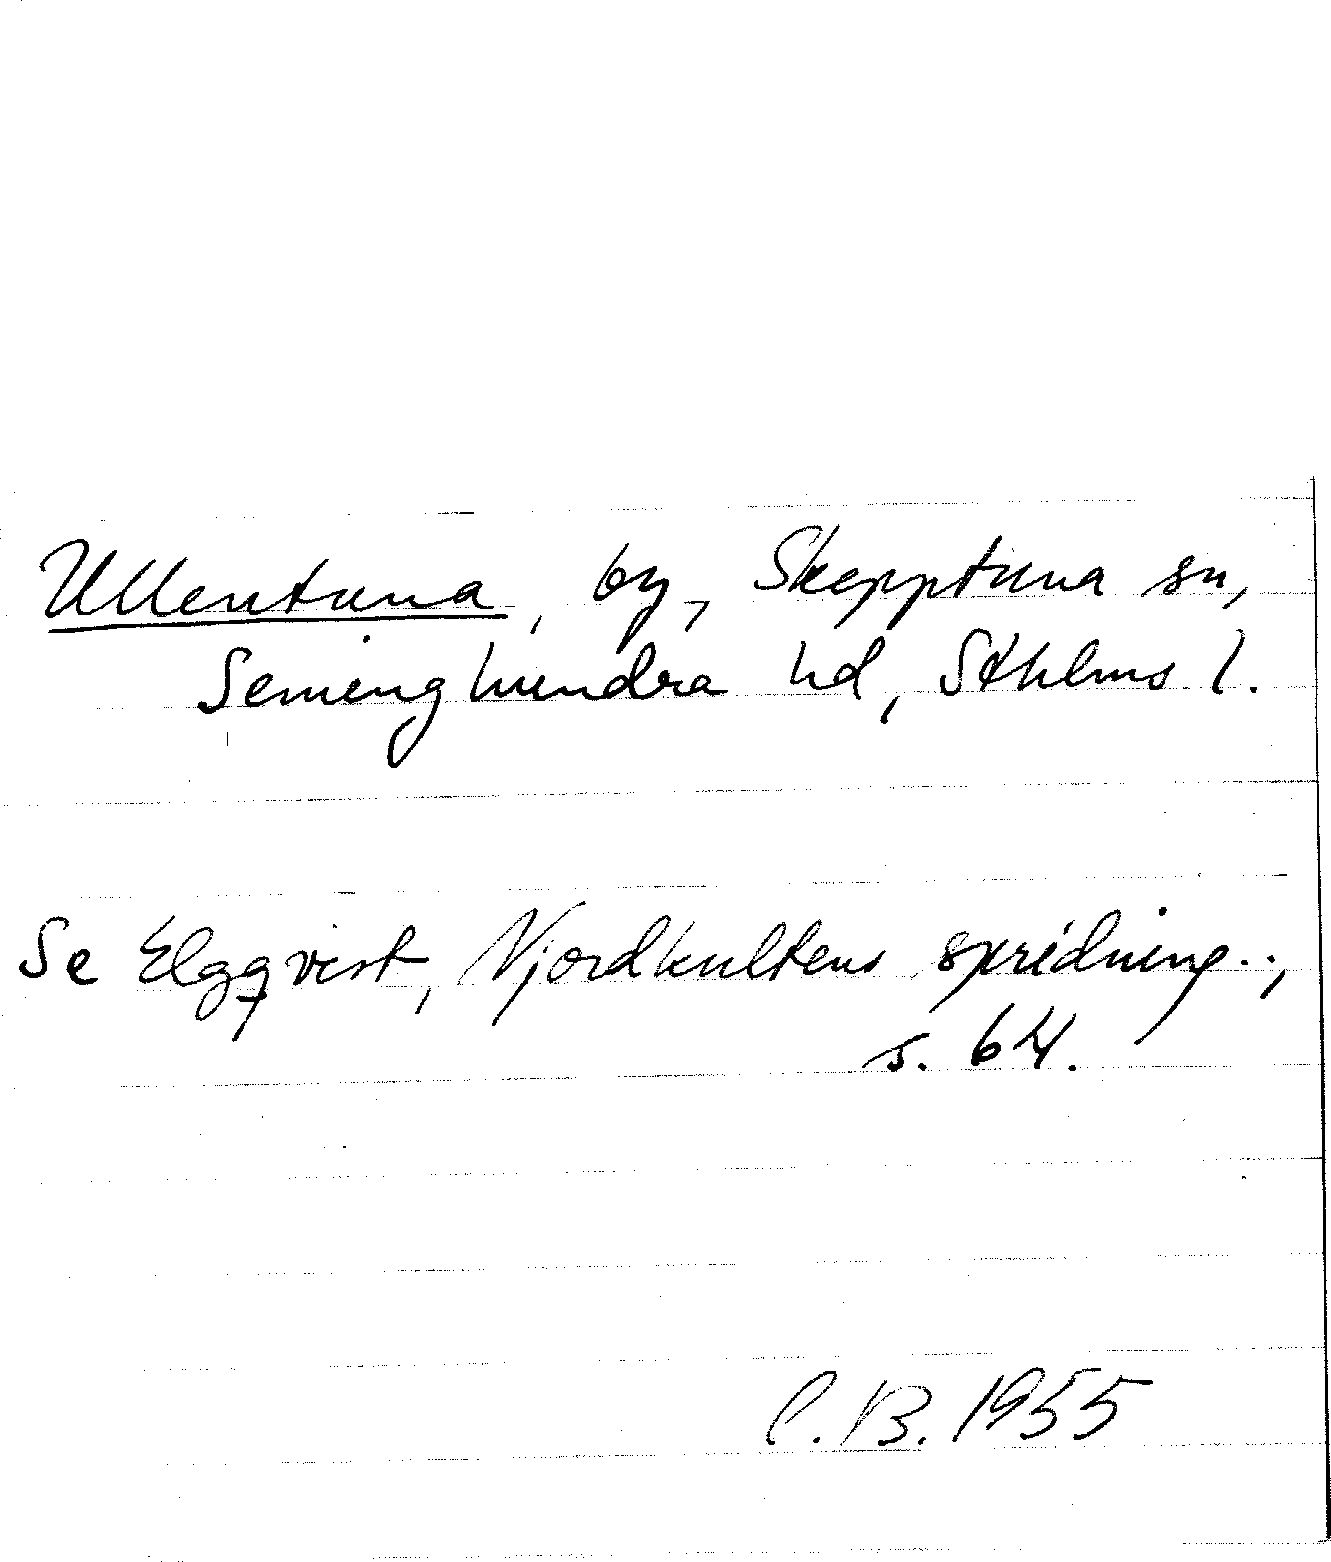 Ullentuna, by, Skepptuna sn,
Seminghundra hd, Sthlms l.
Se Elgqvist, Njordkultens spridning..,
s. 64.
C.B. 1955